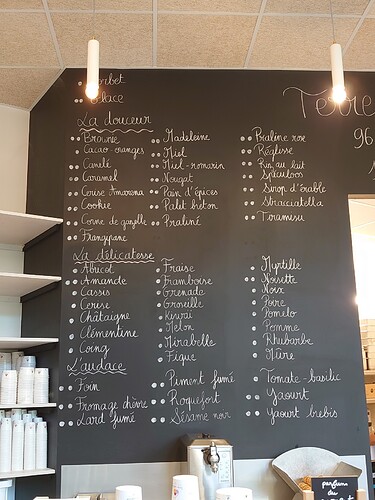 Sorbet
Glace
La douceur
Brownie
Cacao-oranges
Canelé
Caramel
Cerise Amarena
Cookie
Corne de gazelle
Frangipane
Madeleine
Miel
Miel-romarin
Nougat
Pain d'épices
Palet breton
Praliné
Praline rose
Réglisse
Riz au lait
Spéculoos
Sirop d'érable
Stracciatella
Tiramisu
La délicatesse
Abricot
Amande
Cassis
Cerise
Châtaigne
Clémentine
Coing
Fraise
Framboise
Grenade
Groseille
Kiwaï
Melon
Mirabelle
Figue
Myrtille
Noisette
Noix
Poire
Pomelo
Pomme
Rhubarbe
Mûre
L'audace
Foin
Fromage chèvre
Lard fumé
Piment fumé
Roquefort
Sésame noir
Tomate-basilic
Yaourt
Yaourt brebis
Terre
96
parfums